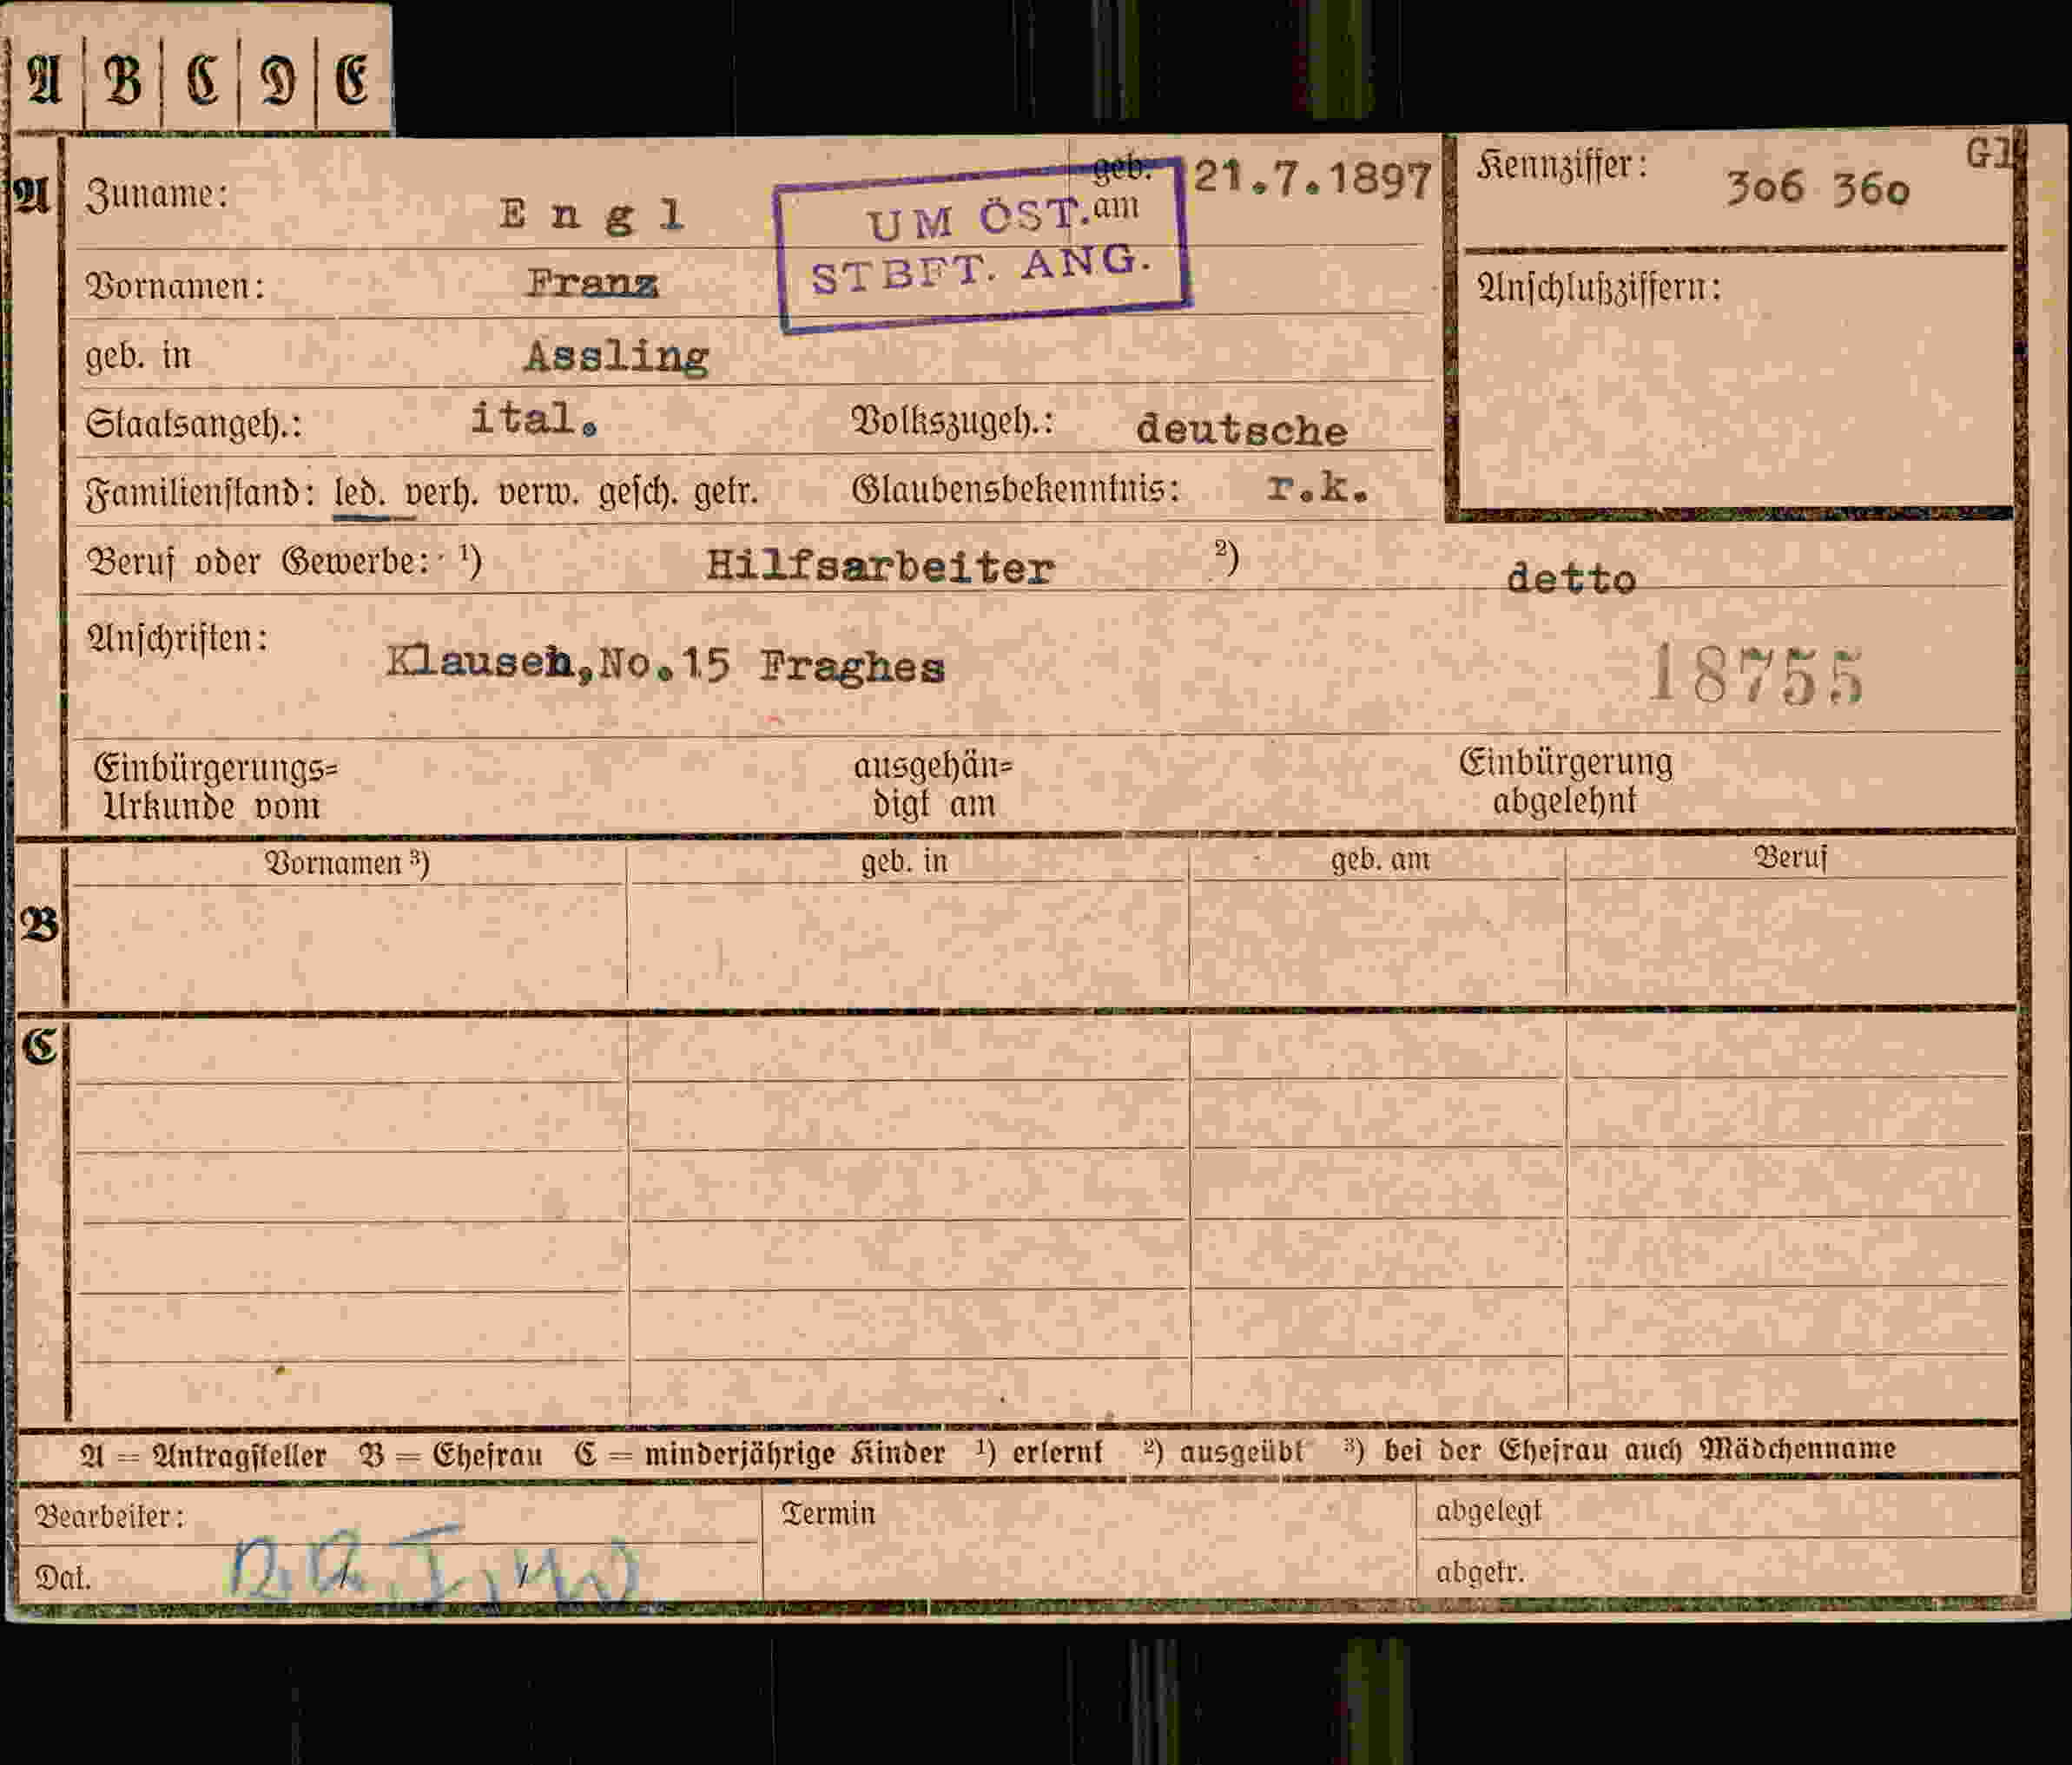 A B C D E
A Zuname: E n g l geb. am 21.7.1897
UM ÖST.
STBFT. ANG.
Kennziffer: 306 360 Gl
Vornamen: Franz
Anschlußziffern:
geb. in Assling
Staatsangeh.: ital. Volkszugeh.: deutsche
Familienstand: led. verh. verw. gesch. getr. Glaubensbekenntnis: r.k.
Beruf oder Gewerbe: ¹) Hilfsarbeiter ²) detto
Anschriften: Klausen,No.15 Fraghes
18755
Einbürgerungs=
Urkunde vom
ausgehän=
digt am
Einbürgerung
abgelehnt
B Vornamen ³) geb. in geb. am Beruf
C
A = Antragsteller B = Ehefrau C = minderjährige Kinder ¹) erlernt ²) ausgeübt ³) bei der Ehefrau auch Mädchenname
Bearbeiter: Termin abgelegt
Dat. abgetr.